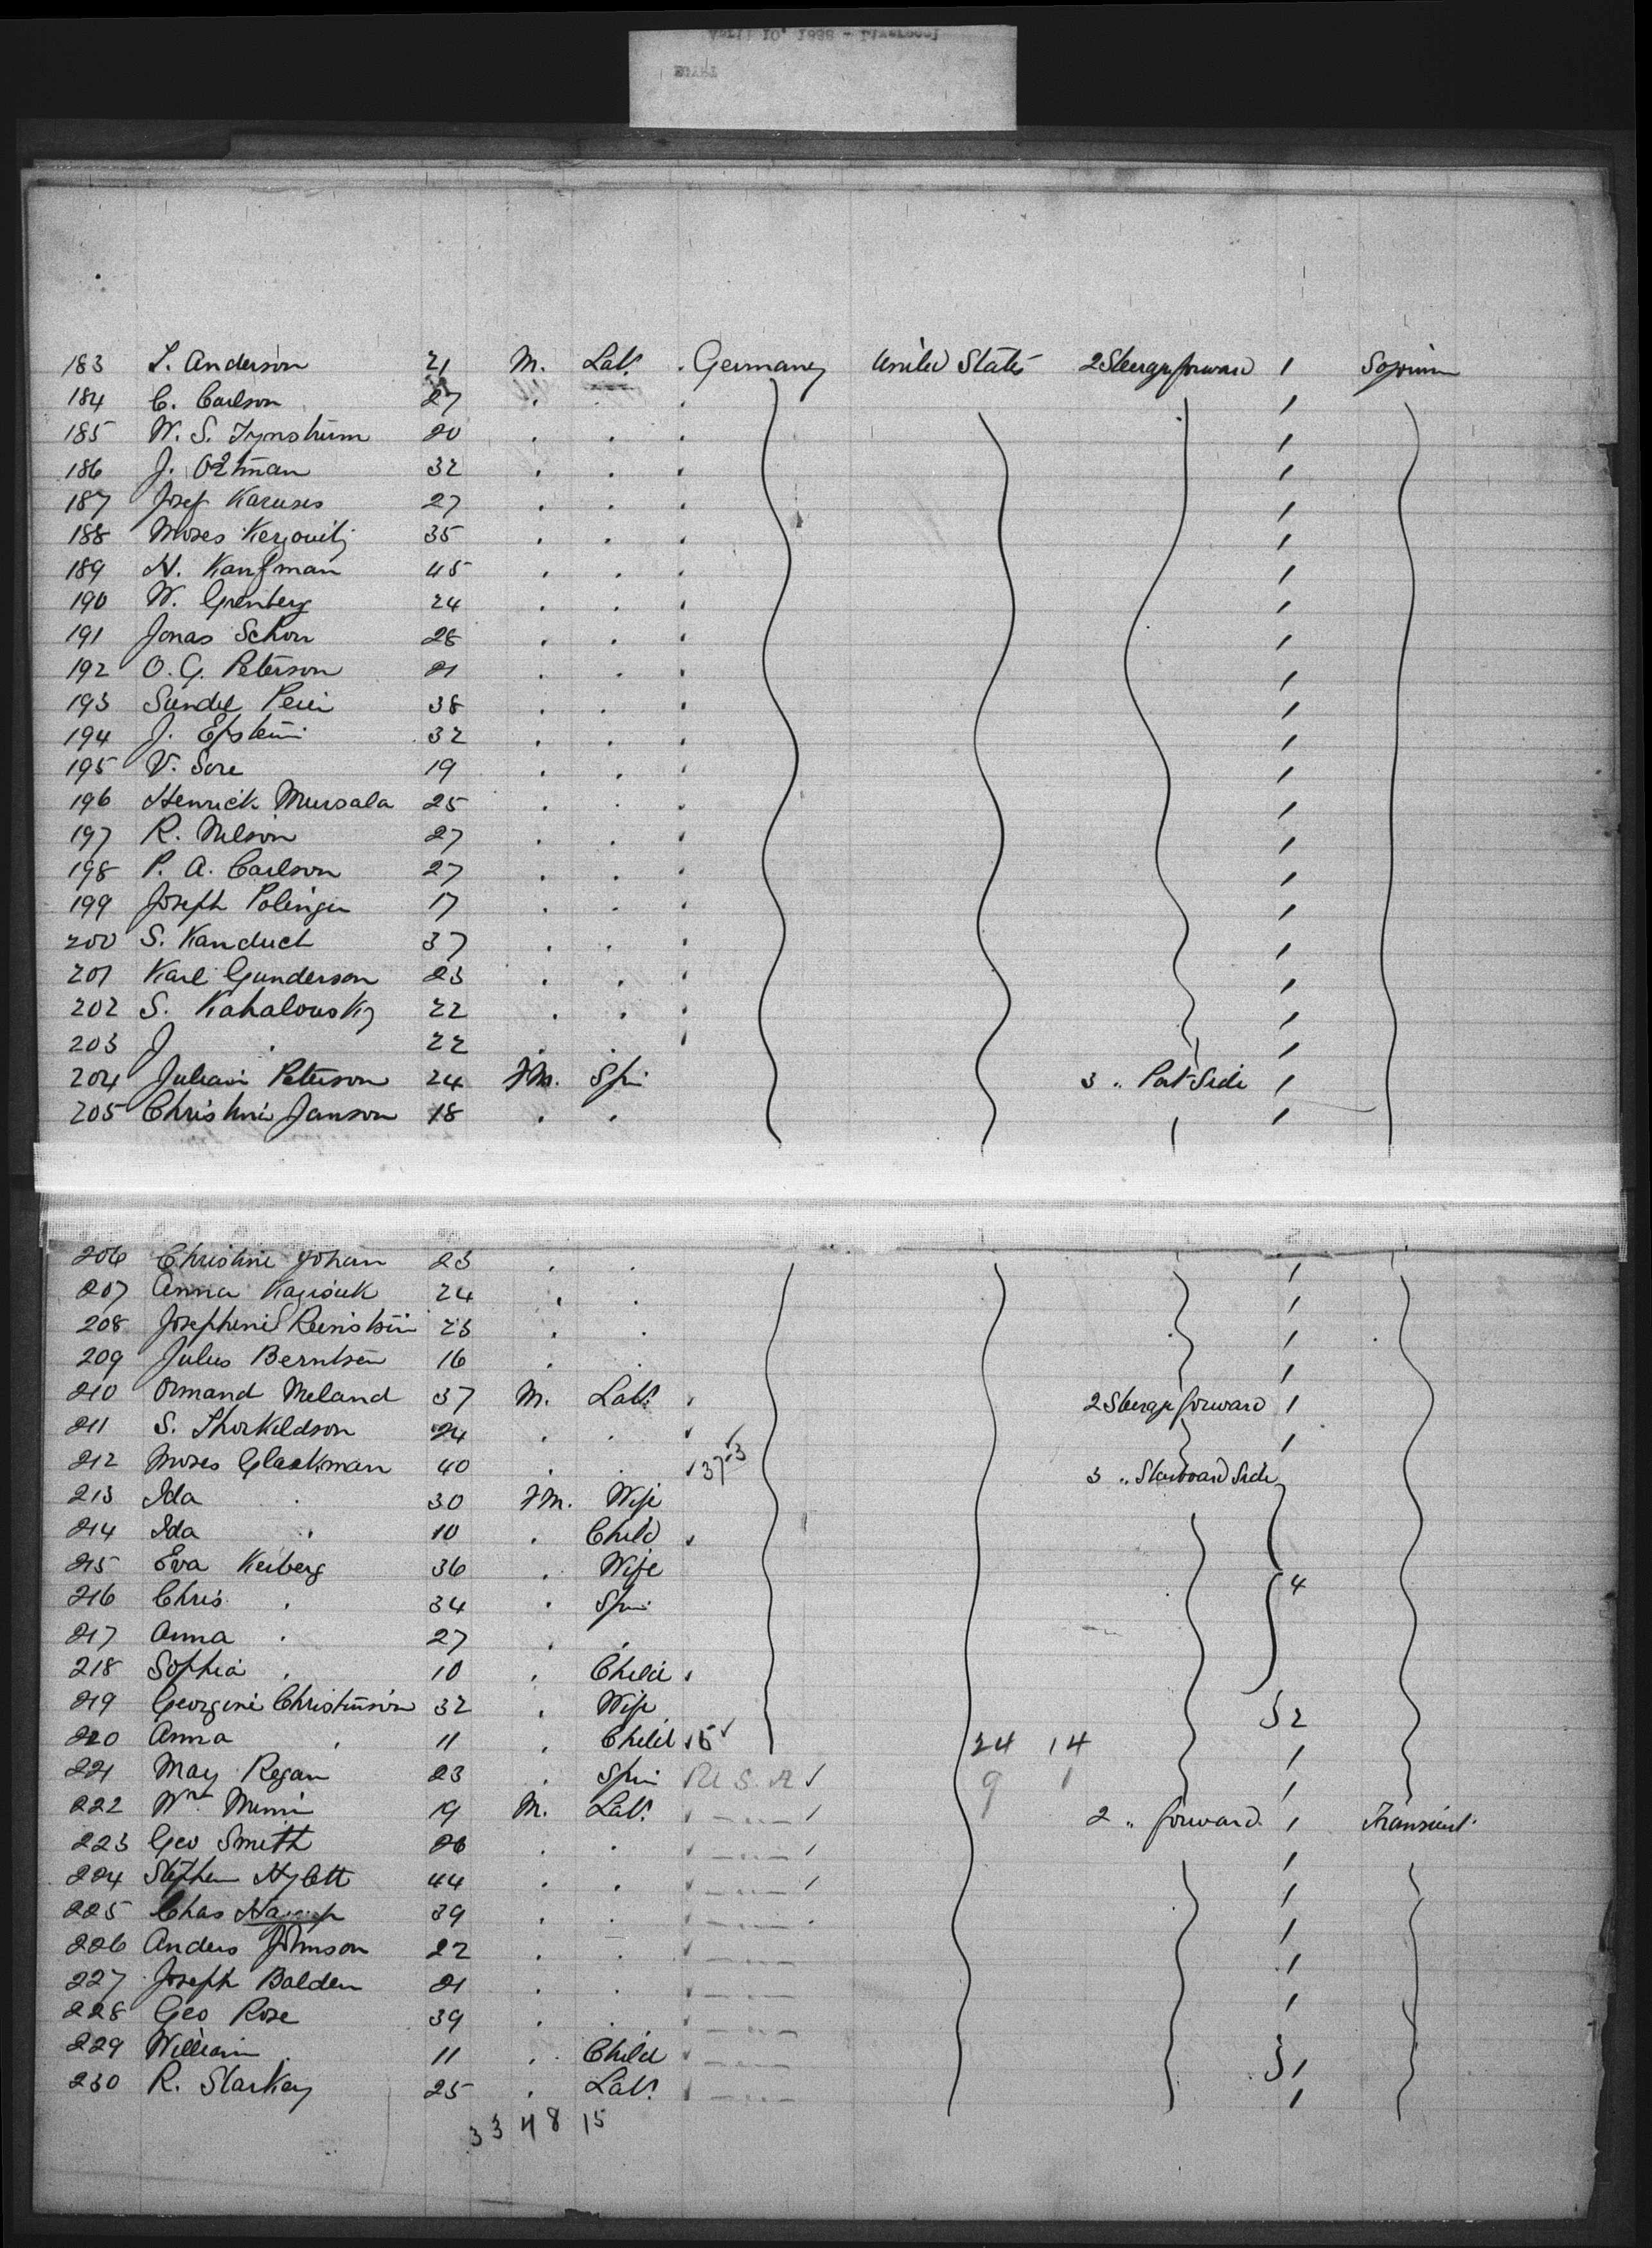 183 I. Anderson 21 M. Labr. . Germany United States 2 Steerage forward 1 Sojourn
184 C. Carlson 27 . . . /
185 W. S. 20 . . . /
186 J. 32 . . . /
187 Josef Karuses 27 . . . /
188 Moses 35 . . . /
189 H. Kaufman 45 . . . /
190 W. Grenberg 24 . . . /
191 Jonas Schon 28 . . . /
192 O. G. Peterson 21 . . . /
193 38 . . . /
194 J. Epstein 32 . . . /
195 V. Sore 19 . . . /
196 Henrick Mursala 25 . . . /
197 R. Nelson 27 . . . /
198 P. A. Carlson 27 . . . /
199 Joseph Polinger 17 . . . /
200 S. Kanduct 37 . . . /
201 Karl Gunderson 23 . . . /
202 S. Kahalousky 22 . . . /
203 J . 22 . . . /
204 Peterson 24 Fm. Spin 3 " Port Side /
205 Christini Janson 18 . . /
206 Christini Johan 23 . . /
207 Anna 24 . . /
208 Josephine Reinstein 23 . . /
209 Julius Berntsen 16 . . /
210 Ormand Meland 37 M. Labr. . 2 Steerage forward 1
211 S. Thorkildson 24 . . . /
212 Moses Glackman 40 . . 37 3 3 " Starboard Side
213 Ida . 30 Fm. Wife
214 Ida . 10 . Child .
215 Eva Keiberg 36 . Wife
216 Chris . 34 . Spin 4
217 Anna . 27 . .
218 Sophia . 10 . Child .
219 Georgine Christinson 32 . Wife 2
220 Anna . 11 . Child 5 24 14 /
221 May Regan 23 . Spin U.S.A 9 1 /
222 Wm. 19 M. Labr. 2 " forward 1 Transient
223 Geo Smith 26 . . /
224 Stephen 44 . . /
225 Chas 39 . . /
226 Anders Johnson 22 . . /
227 Joseph Balden 21 . . /
228 Geo Rose 39 . .
229 William . 11 . Child 1
230 R. Starkey 25 . Labr. /
33 48 15